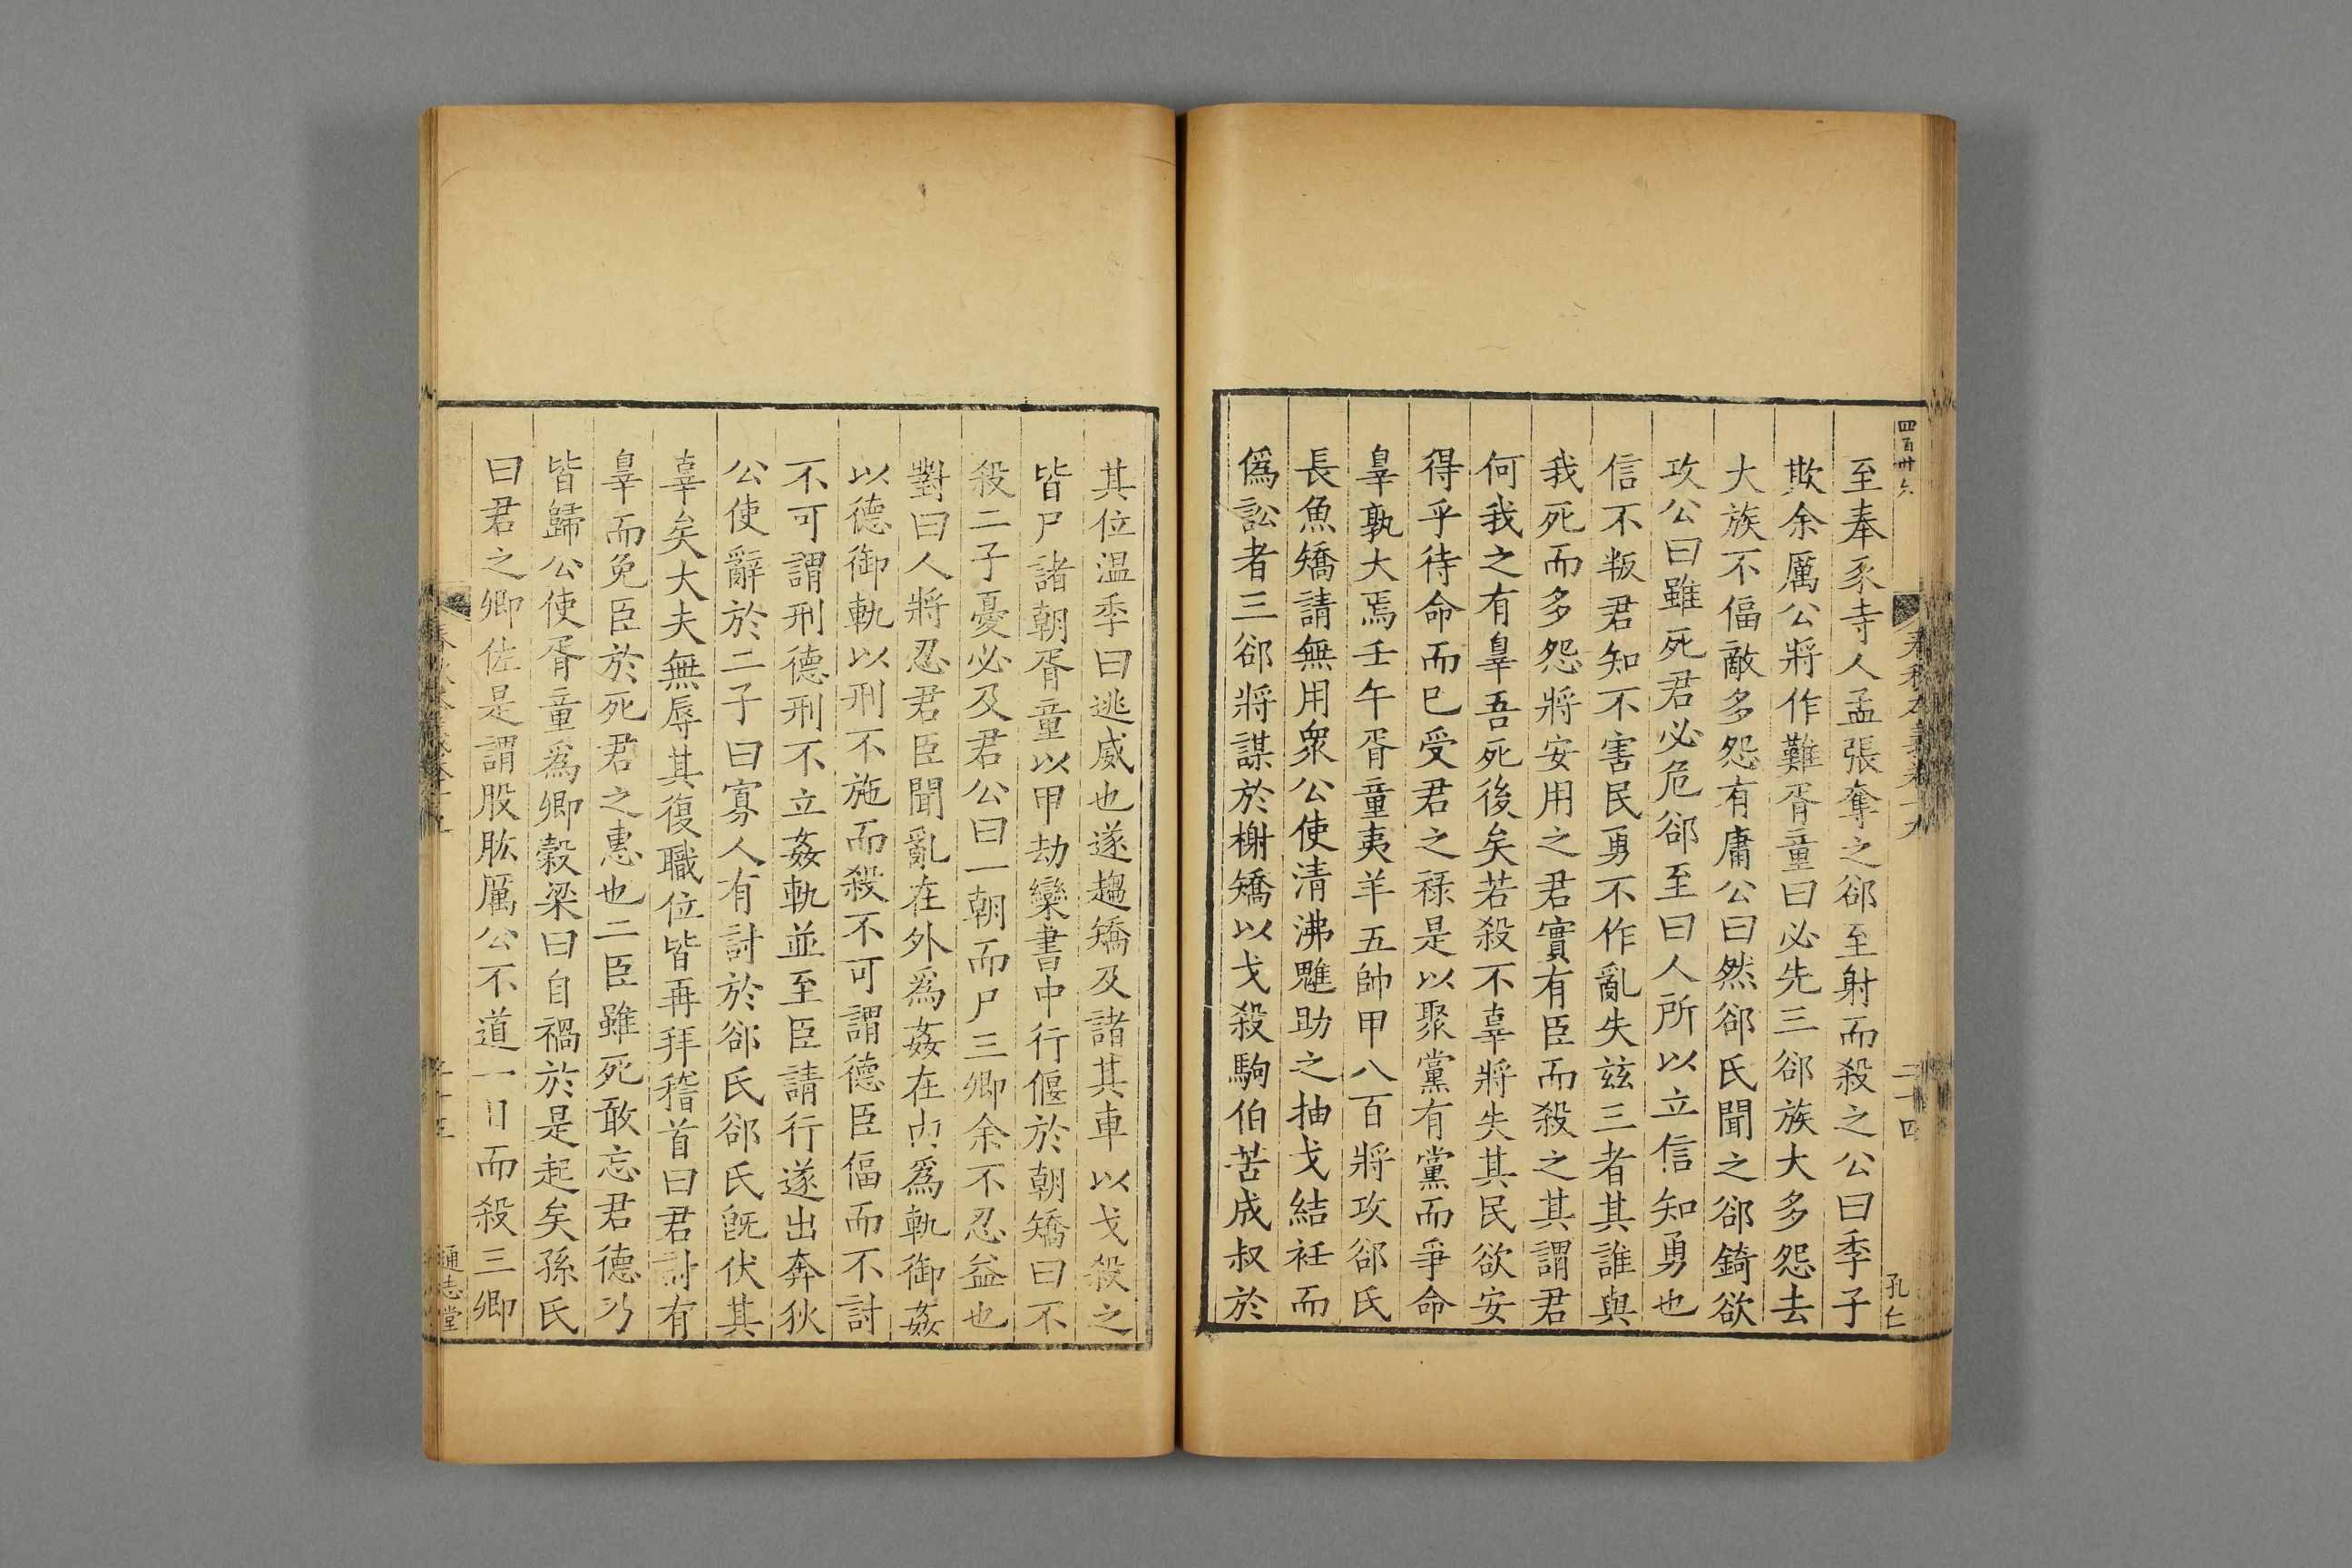 四百卅六
春秋本義卷十九
二十四
孔仁
至奉豕寺人孟張奪之郤至射而殺之公曰季子
欺余厲公將作難胥童曰必先三郤族大多怨去
大族不偪敵多怨有庸公曰然郤氏聞之郤錡欲
攻公曰雖死君必危郤至曰人所以立信知勇也
信不叛君知不害民勇不作亂失兹三者其誰與
我死而多怨將安用之君實有臣而殺之其謂君
何我之有辠吾死後矣若殺不辜將失其民欲安
得乎待命而已受君之禄是以聚黨有黨而爭命
辠孰大焉壬午胥童夷羊五帥甲八百將攻郤氏
長魚矯請無用衆公使清沸魋助之抽戈結衽而
僞訟者三郤將謀於榭矯以戈殺駒伯苦成叔於
其位温季曰逃威也遂趨矯及諸其車以戈殺之
皆尸諸朝胥童以甲劫欒書中行偃於朝矯曰不
殺二子憂必及君公曰一朝而尸三卿余不忍益也
對曰人將忍君臣聞亂在外爲姦在内爲軌御姦
以德御軌以刑不施而殺不可謂德臣偪而不討
不可謂刑德刑不立姦軌並至臣請行遂出奔狄
公使辭於二子曰寡人有討於郤氏郤氏旣伏其
辜矣大夫無辱其復職位皆再拜稽首曰君討有
辠而免臣於死君之惠也二臣雖死敢忘君德乃
皆歸公使胥童爲卿穀梁曰自禍於是起矣孫氏
曰君之卿佐是謂股肱厲公不道一日而殺三卿
通志堂